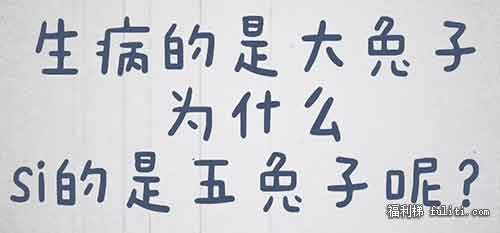 生病的是大兔子
为什么
si的是五兔子呢?
福利梯 fuliti.com